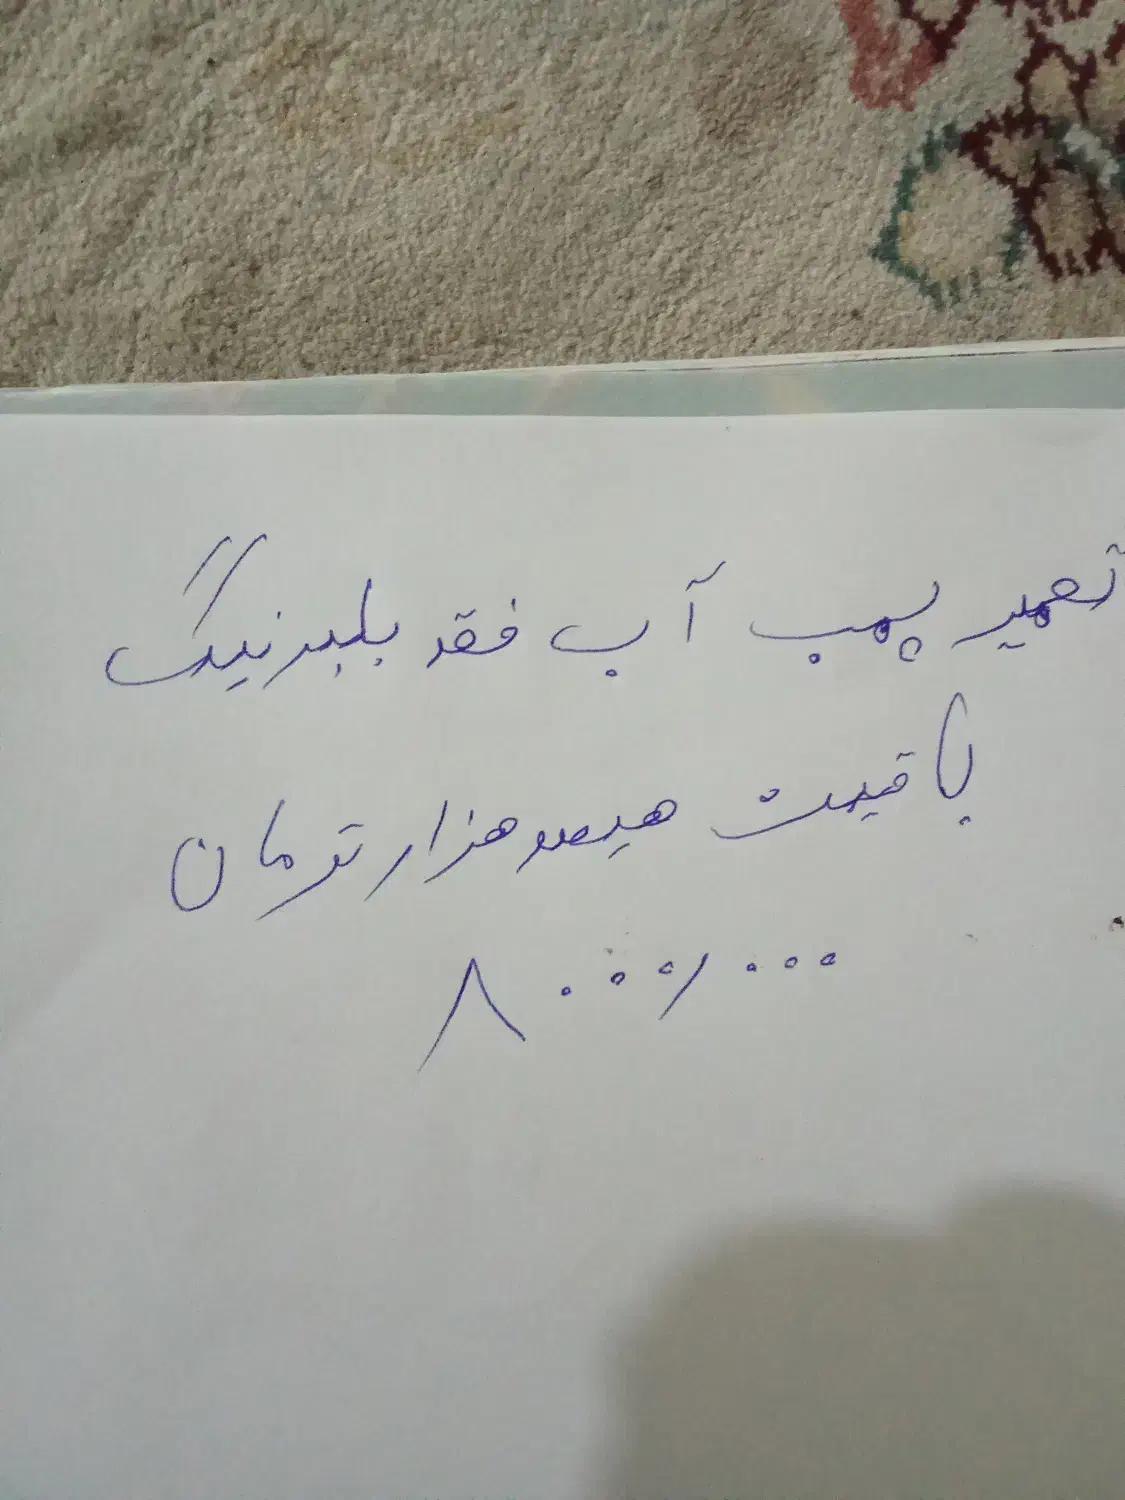 تعمیر پمپ آب فقد بلبرنیگ
با قیمت هیصد هزار تومان
۸۰۰۰/۰۰۰